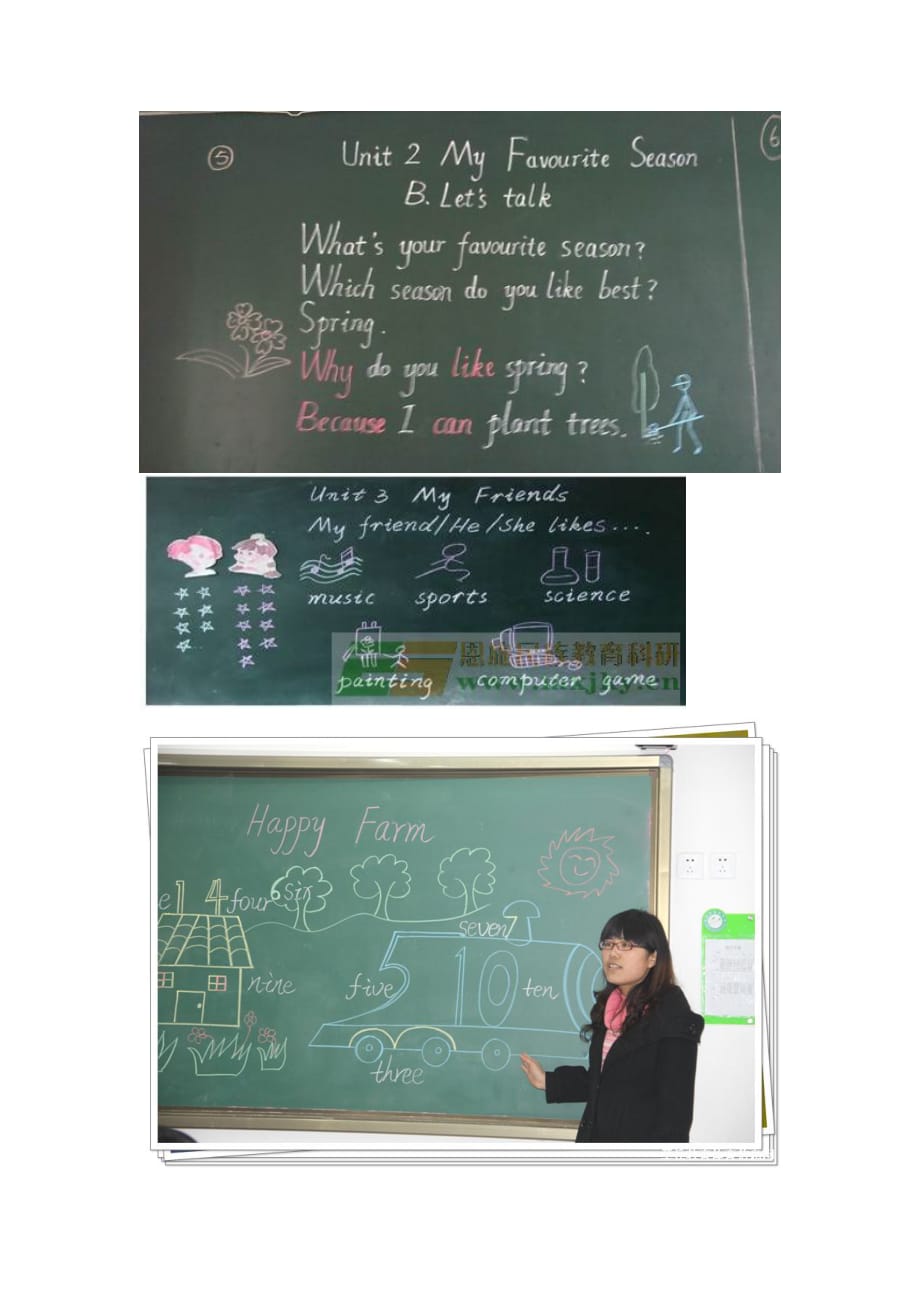 ⑤
⑥
Unit 2 My Favourite Season
B. Let's talk
What's your favourite season?
Which season do you like best?
Spring.
Why do you like spring?
Because I can plant trees.
Unit 3 My Friends
My friend/He/She likes....
music sports science
painting computer game
Happy Farm
1 4 four Six
seven 7
nine five 5 10 ten
three